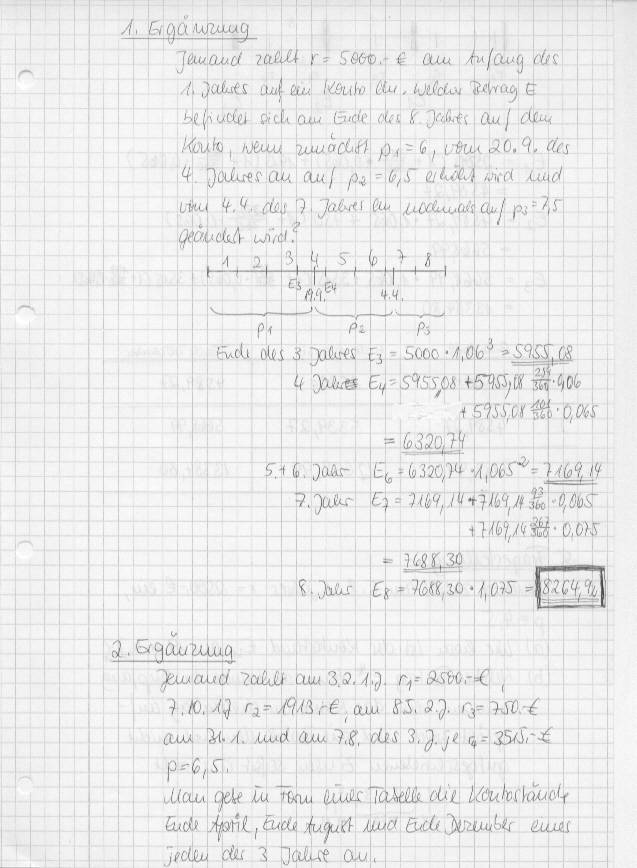 1. Ergänzung
Jemand zahlt r = 5000.- € am Anfang des
1. Jahres auf ein Konto ein. Welcher Betrag E
befindet sich am Ende des 8. Jahres auf dem
Konto, wenn zunächst p1 = 6, vom 20.9. des
4. Jahres an auf p2 = 6,5 erhöht wird und
vom 4.4. des 7. Jahres an nochmals auf p3 = 7,5
geändert wird?
1 2 3 4 5 6 7 8
E3 19.9. E4 4.4.
p1 p2 p3
Ende des 3. Jahres E3 = 5000 · 1,06³ = 5955,08
4 Jahres E4 = 5955,08 + 5955,08 259/360 · 0,06
+ 5955,08 101/360 · 0,065
= 6320,74
5.+6. Jahr E6 = 6320,74 · 1,065² = 7169,14
7. Jahr E7 = 7169,14 + 7169,14 93/360 · 0,065
+ 7169,14 267/360 · 0,075
= 7688,30
8. Jahr E8 = 7688,30 · 1,075 = 8264,92
2. Ergänzung
Jemand zahlt am 3.2. 1.J. r1 = 2500.-€,
7.10. 1J r2 = 1913.-€, am 8.5. 2.J. r3 = 750.-€
am 31.1. und am 7.8. des 3.J. je r4 = 3515.-€
p = 6,5.
Man gebe in Form einer Tabelle die Kontostände
Ende April, Ende August und Ende Dezember eines
jeden der 3 Jahre an.